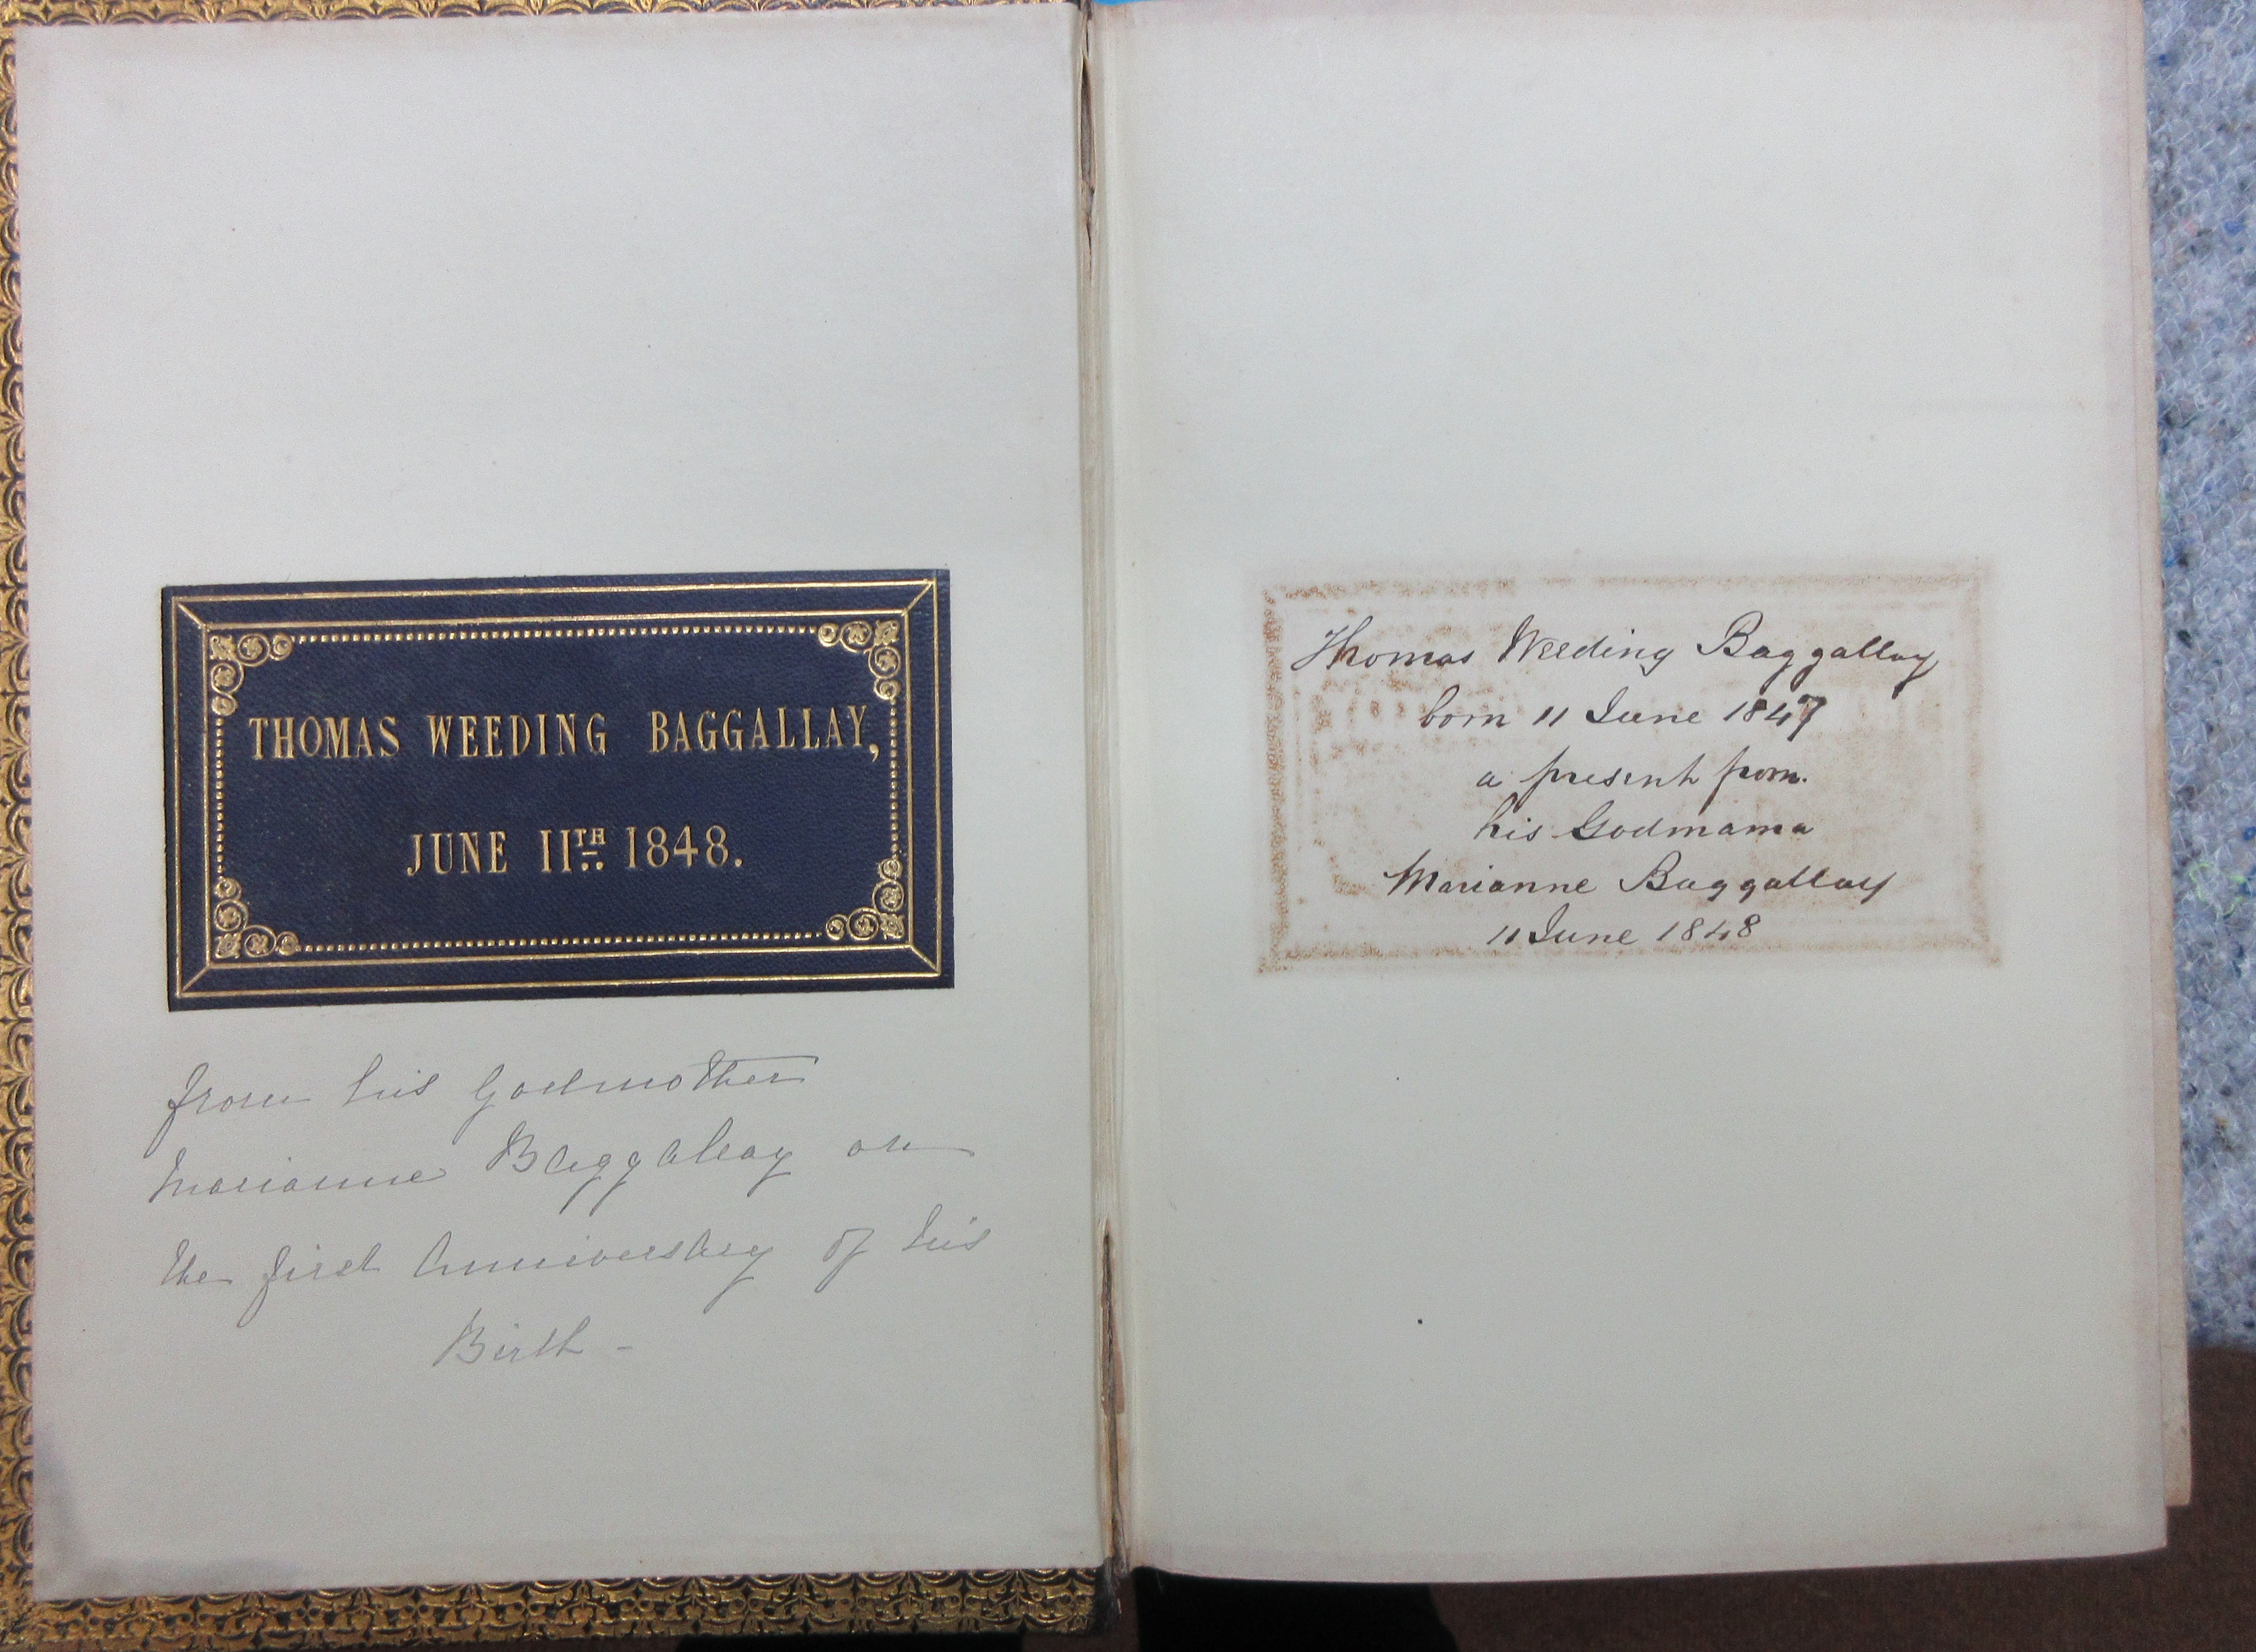 THOMAS WEEDING BAGGALLAY,
JUNE 11TH 1848.
from his Godmother
Marianne Baggallay on
the first Anniversary of his
Birth -
Thomas Weeding Baggallay
born 11 June 1847
a present from
his Godmama
Marianne Baggallay
11 June 1848